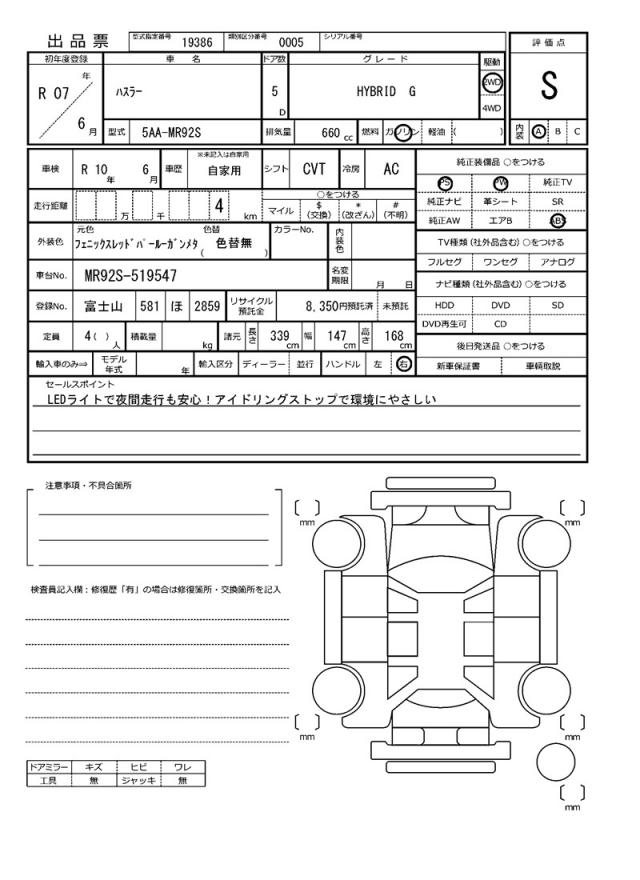 出品票 型式指定番号 19386 類別区分番号 0005 シリアル番号
初年度登録 車名 ドア数 グレード 駆動 評価点
R 07 年 6 月 ハスラー 5 D HYBRID G 2WD 4WD S
型式 5AA-MR92S 排気量 660 cc 燃料 ガソリン 軽油 ( ) 内装 A B C
車検 R 10 年 6 月 車歴 ※未記入は自家用 自家用 シフト CVT 冷房 AC 純正装備品 ○をつける
PS PW 純正TV
走行距離 万 千 4 km ○をつける 純正ナビ 革シート SR
マイル $ (交換) * (改ざん) # (不明) 純正AW エアB ABS
外装色 元色 色替 カラーNo. 内装色 TV種類 (社外品含む) ○をつける
フェニックスレッドパールーガンメタ ( 色替無 ) フルセグ ワンセグ アナログ
車台No. MR92S-519547 名変期限 月 日 ナビ種類 (社外品含む) ○をつける
登録No. 富士山 581 ほ 2859 リサイクル預託金 8,350円預託済 未預託 HDD DVD SD
DVD再生可 CD
定員 4 ( ) 人 積載量 kg 諸元 長さ 339 cm 幅 147 cm 高さ 168 cm 後日発送品 ○をつける
輸入車のみ⇒ モデル年式 年 輸入区分 ディーラー 並行 ハンドル 左 右 新車保証書 車輌取説
セールスポイント
LEDライトで夜間走行も安心！アイドリングストップで環境にやさしい
注意事項・不具合箇所
mm mm
検査員記入欄：修復歴「有」の場合は修復箇所・交換箇所を記入
mm mm
ドアミラー キズ ヒビ ワレ
工具 無 ジャッキ 無
mm